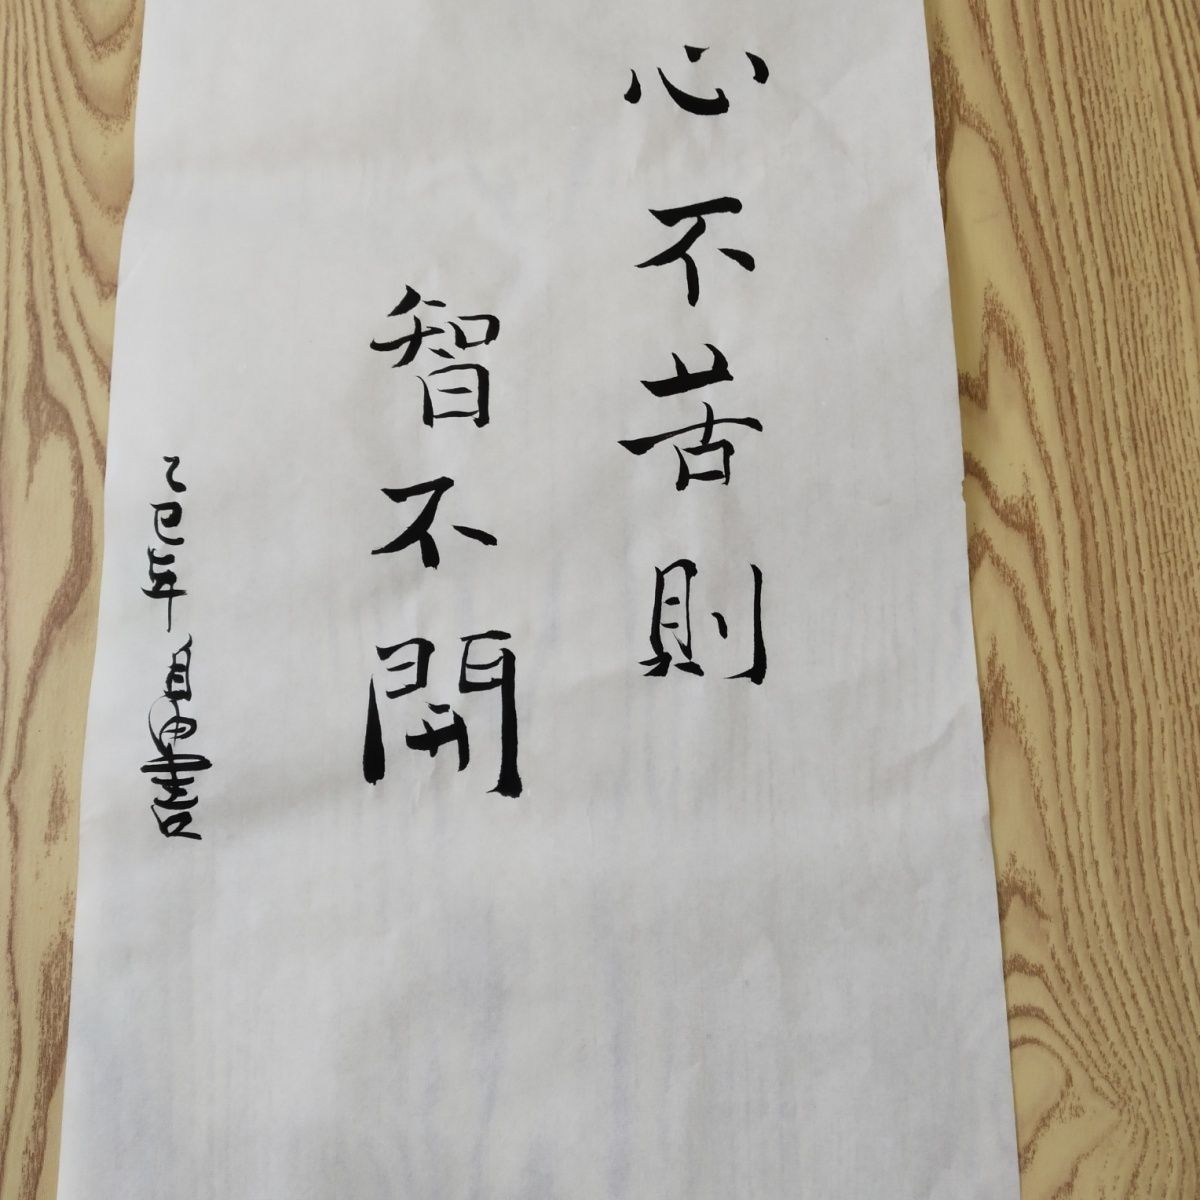 心不苦則
智不開
乙巳年自由書